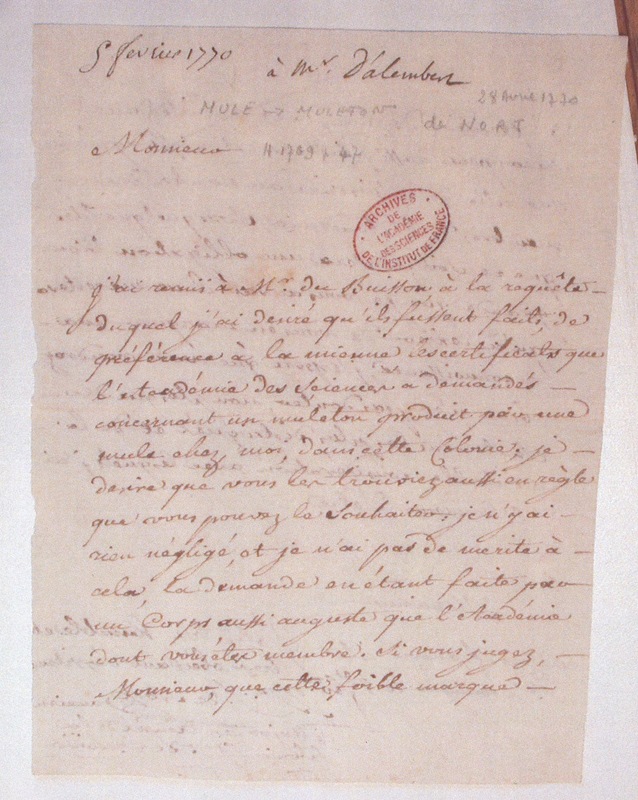 5 fevrier 1770
à Mr. D'alembert
28 Avril 1770
MULE → MULETON
de NORT.
Monsieur
H. 1769 p 47
ARCHIVES
DE
L'ACADÉMIE
DES SCIENCES
DE L'INSTITUT DE FRANCE
J'ai remis à Mr. du Buisson à la rêquête —
duquel j'ai desiré qu'ils fussent faits, de
préférence à la mienne les certificats que
l'Académie des Sciences a demandés —
concernant un muleton produit par une
mule chez moi, dans cette Colonie; je —
desire que vous les trouviez aussi en règle
que vous pouvez le Souhaiter; je n'y ai —
rien négligé, et je n'ai pas de merite à —
cela, la demande en étant faite par
un Corps aussi auguste que l'Académie
dont vous êtes membre. Si vous jugez, —
Monsieur, que cette foible marque —